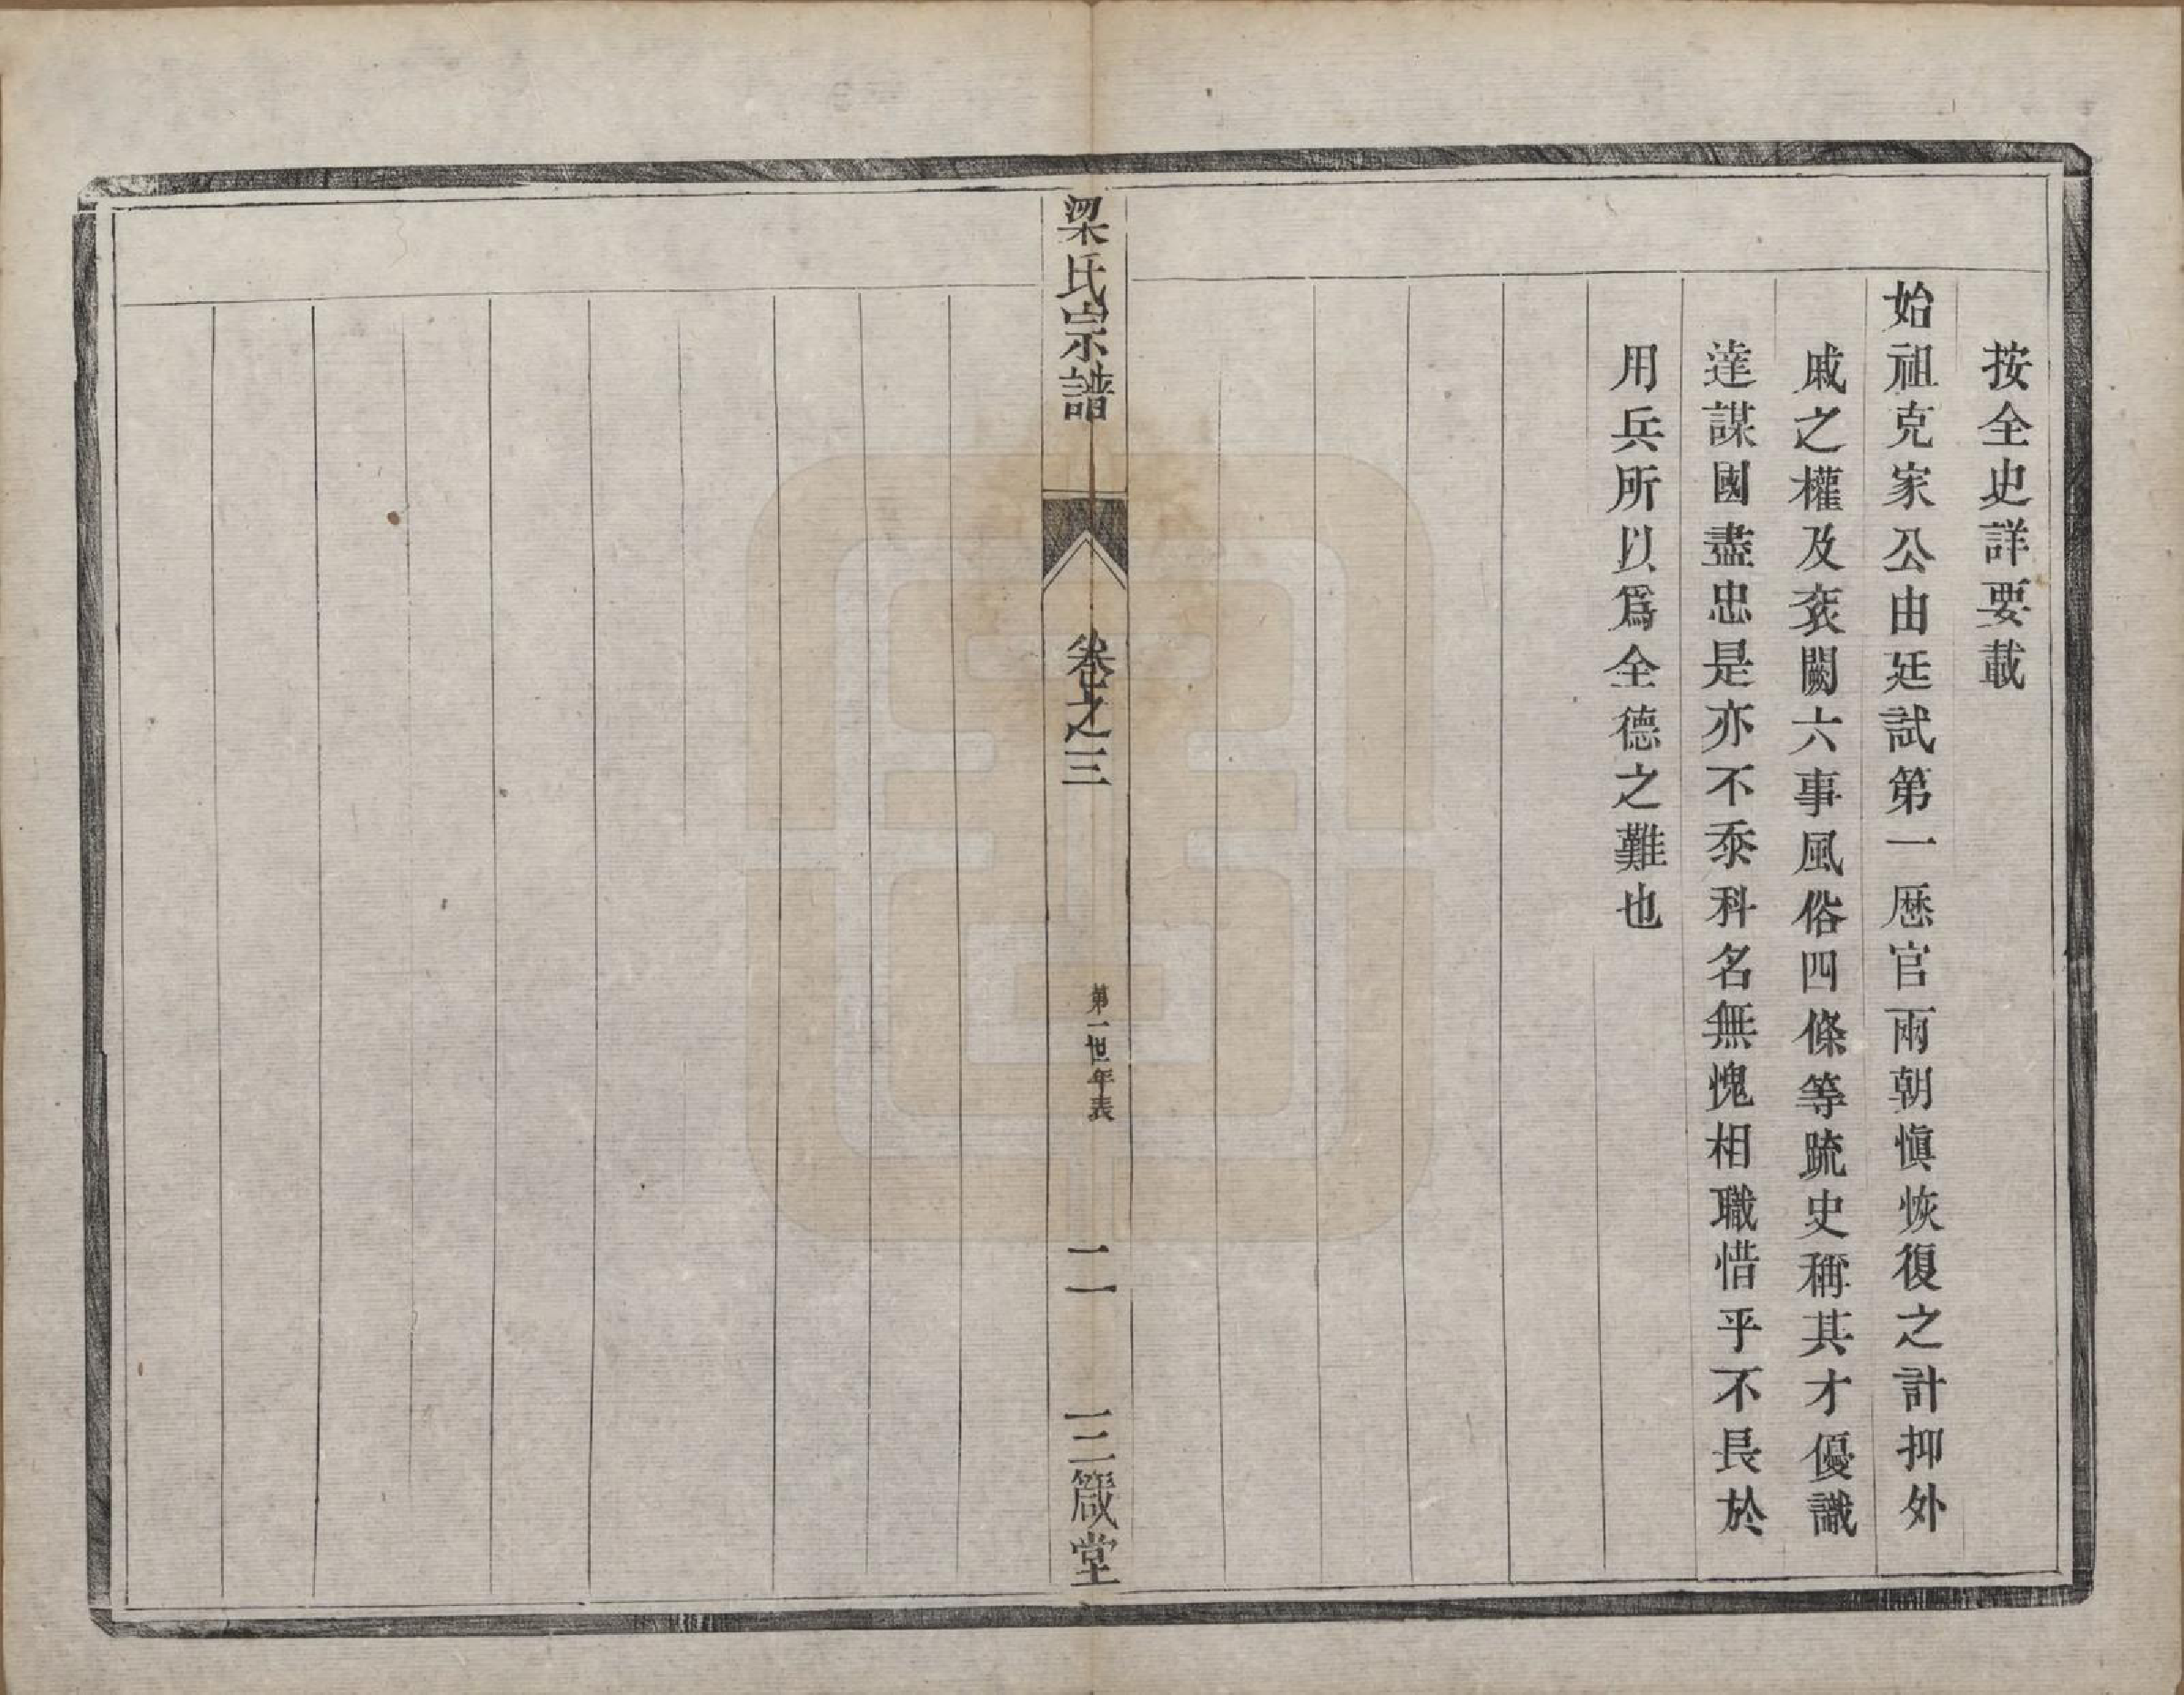 按全史詳要載
始祖克家公由廷試第一厯官兩朝愼恢復之計抑外
戚之權及衮闕六事風俗四條等䟽史稱其才優識
達謀國盡忠是亦不忝科名無愧相職惜乎不良於
用兵所以爲全德之難也
梁氏宗譜
卷之三
第一世年表
二
三箴堂